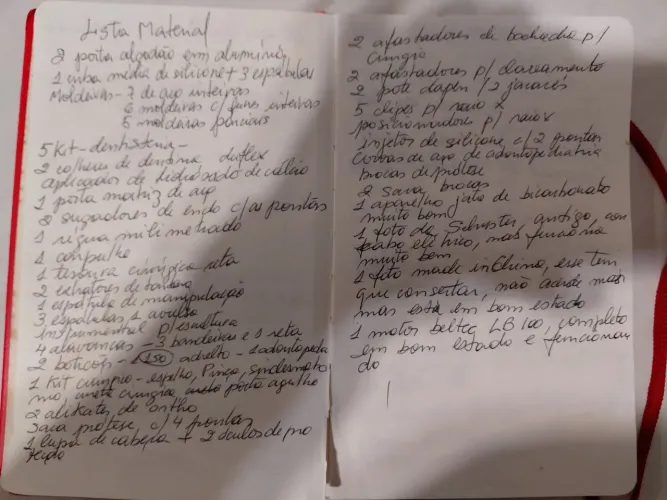 Lista Material
2 porta algodão em alumínio
1 cuba média de silicone + 3 espátulas
Moldeiras - 7 de aço inteiras
6 moldeiras c/ furos inteiras
5 moldeiras parciais
5 Kit - dentisteria -
2 colheres de dentina duflex
aplicador de hidróxido de cálcio
1 porta matriz de aço
2 sugadores de endo c/ as pontas
1 régua milimetrado
1
1 tesoura cirúrgica reta
2 de banda
1 espátula de manipulação
3 espátulas 1 avulsa
instrumental p/ escultura
4 alavancas - 3 bandeiras e 1 reta
2 boticões - 1 150 adulto - 1 odontopedia
1 Kit cirurgia - espelho, Pinça, sindesmoto
mo, cirurgia, porta agulha
2 alikates de ortho
Saca prótese c/ 4 pontas
1 lupa de cabeça + 2 óculos de pro
teção
2 afastadores de bochecha p/
cirurgia
2 afastadores p/ clareamento
2 pote dapen / 2 jacarés
5 clipes p/ raio x
posicionadores p/ raio x
injetor de silicone c/ 2 pontas
Coroas de aço de odontopediatria
brocas de prótese
2 Saca brocas
1 aparelho jato de bicarbonato
muito bom
1 foto da Schuster, antigo, com
cabo elétrico, mas funciona
muito bem
1 foto made in China, esse tem
que consertar, não acende mais
mas está em bom estado
1 motor beltec LB 100, completo
em bom estado e funcionan
do